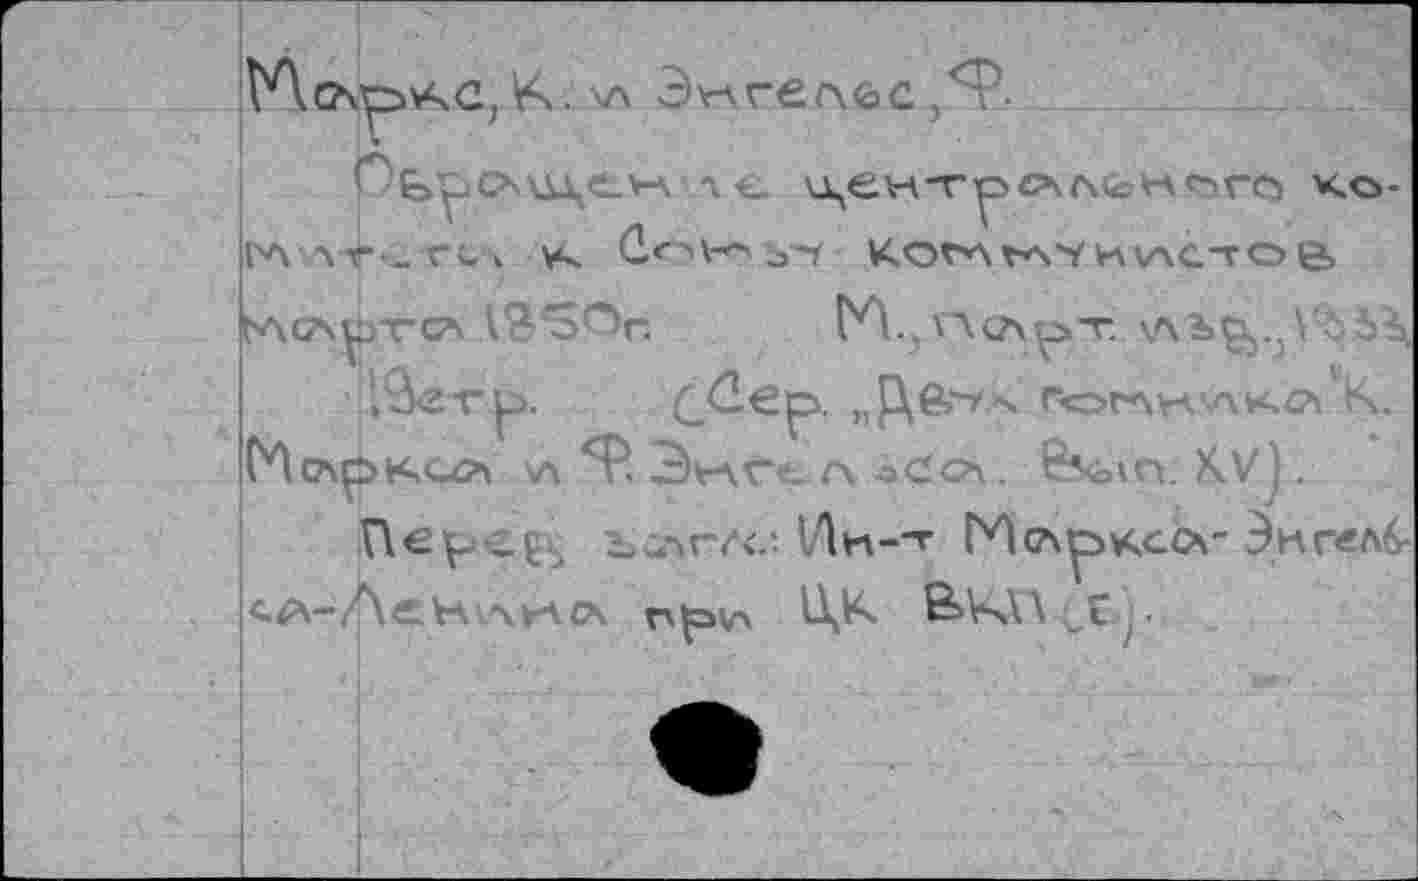 Маркс, К. и Энгельс, Ф.
Обращение центрального ко-
митета к Союзу коммунистов
марта 1850г. М., парт. изд., 1933,
стр. (Сер. „Деш. К.
Маркса и Ф. Энгельса. Вып. XV).
Перед загл.: Ин-т Маркса-Энгель-
са-Ленина при ЦК ВКП(б).